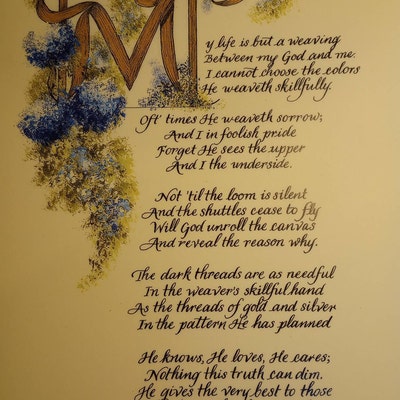 My life is but a weaving
Between my God and me.
I cannot choose the colors
He weaveth skillfully.
Oft' times He weaveth sorrow;
And I in foolish pride
Forget He sees the upper
And I the underside.
Not 'til the loom is silent
And the shuttles cease to fly
Will God unroll the canvas
And reveal the reason why.
The dark threads are as needful
In the weaver's skillful hand
As the threads of gold and silver
In the pattern He has planned
He knows, He loves, He cares;
Nothing this truth can dim.
He gives the very best to those